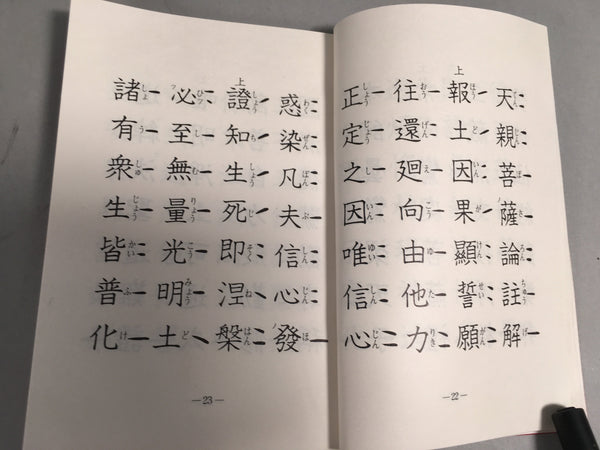 天親菩薩論註解
上
報土因果顯誓願
往還廻向由他力
正定之因唯信心
—22—
惑染凡夫信心發
上
證知生死即涅槃
必至無量光明土
諸有衆生皆普化
—23—